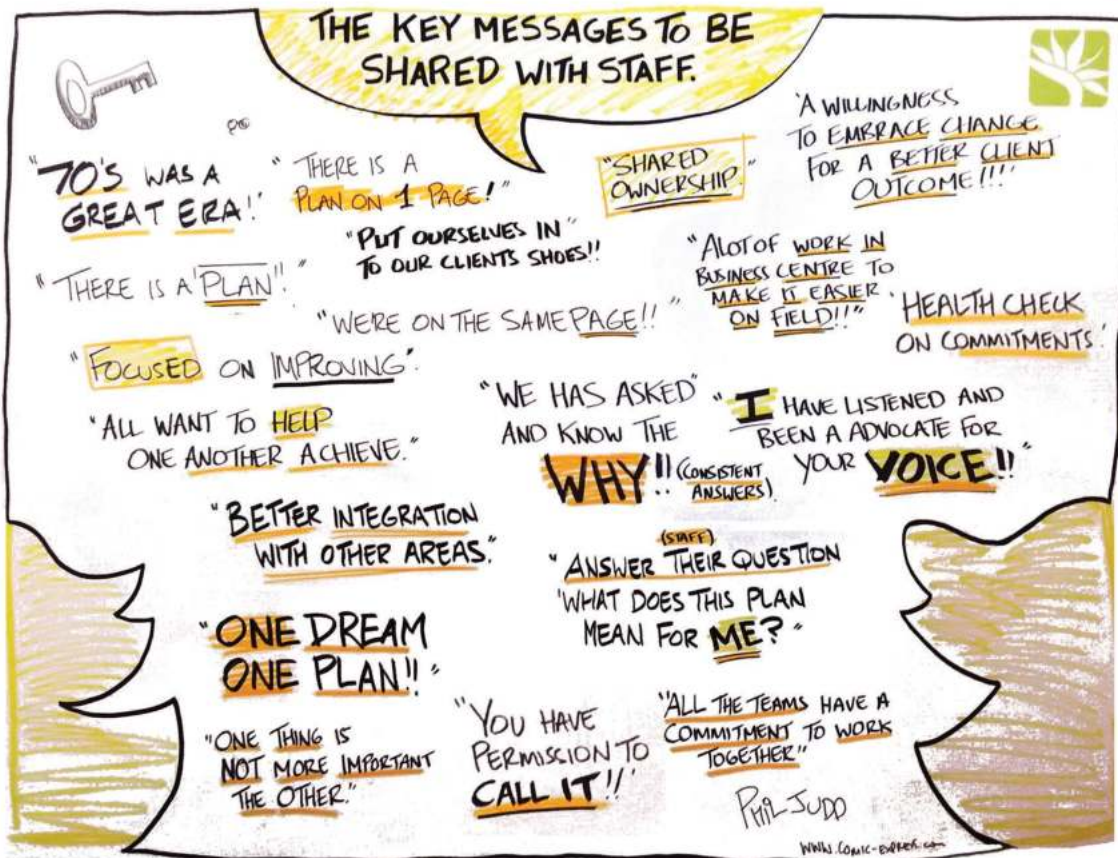 THE KEY MESSAGES TO BE
SHARED WITH STAFF.
"70'S WAS A
GREAT ERA!'
"THERE IS A
PLAN ON 1 PAGE!"
"SHARED
OWNERSHIP."
'A WILLINGNESS
TO EMBRACE CHANGE
FOR A BETTER CLIENT
OUTCOME!!!'
"PUT OURSELVES IN"
TO OUR CLIENTS SHOES!!
"THERE IS A 'PLAN'!."
"WE'RE ON THE SAME PAGE!!"
"ALOT OF WORK IN
BUSINESS CENTRE TO
MAKE IT EASIER
ON FIELD!!"
'HEALTH CHECK
ON COMMITMENTS.'
"FOCUSED ON IMPROVING".
"ALL WANT TO HELP
ONE ANOTHER ACHIEVE."
"WE HAS ASKED"
AND KNOW THE
WHY!! (CONSISTENT
ANSWERS).
"I HAVE LISTENED AND
BEEN A ADVOCATE FOR
YOUR VOICE!!"
"BETTER INTEGRATION
WITH OTHER AREAS."
(STAFF)
"ANSWER THEIR QUESTION
'WHAT DOES THIS PLAN
MEAN FOR ME?"
"ONE DREAM
ONE PLAN!!"
"ONE THING IS
NOT MORE IMPORTANT
THE OTHER."
"YOU HAVE
PERMISSION TO
CALL IT!!'
"ALL THE TEAMS HAVE A
COMMITMENT TO WORK
TOGETHER"
PHIL JUDD